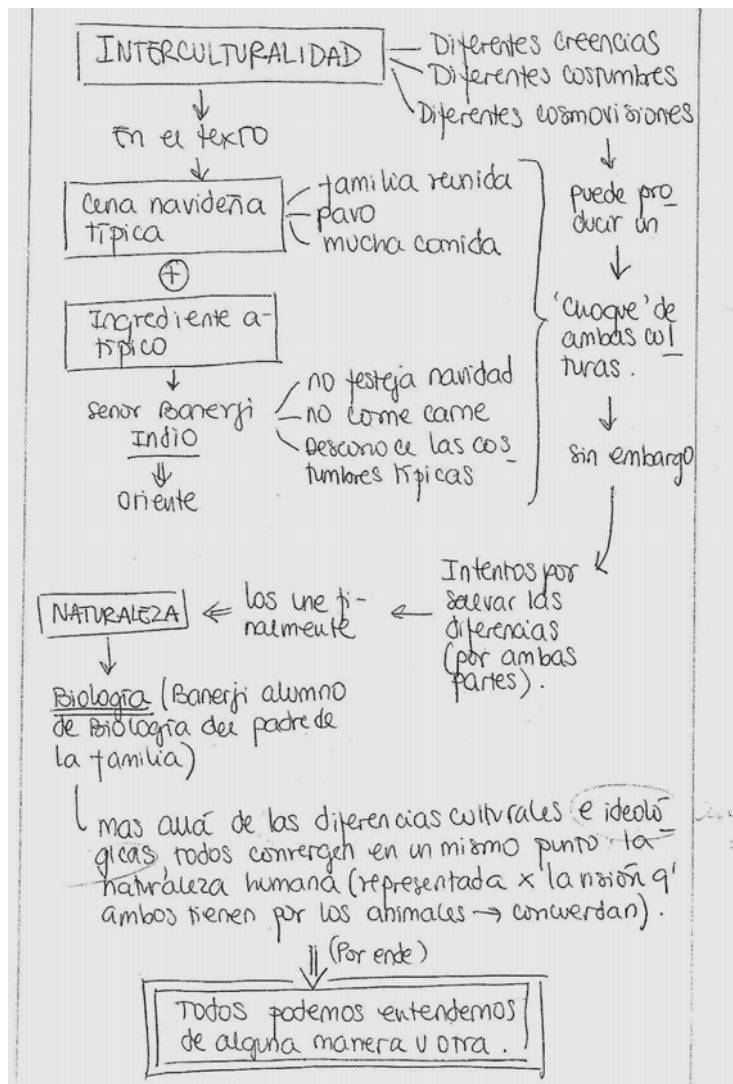 INTERCULTURALIDAD
Diferentes creencias
Diferentes costumbres
Diferentes cosmovisiones
En el texto
Cena navideña
típica
familia reunida
pavo
mucha comida
+
Ingrediente a-
típico
Señor Banerji
Indio
Oriente
no festeja navidad
no come carne
Desconoce las cos_
tumbres típicas
puede pro_
ducir un
'choque' de
ambas cul_
turas.
sin embargo
Intentos por
salvar las
diferencias
(por ambas
partes).
los une fi-
nalmente
NATURALEZA
Biología (Banerji alumno
de Biología del padre de
la familia)
mas allá de las diferencias culturales e ideoló_
gicas todos convergen en un mismo punto la
naturaleza humana (representada x la visión q'
ambos tienen por los animales → concuerdan).
(Por ende)
Todos podemos entendernos
de alguna manera u otra.